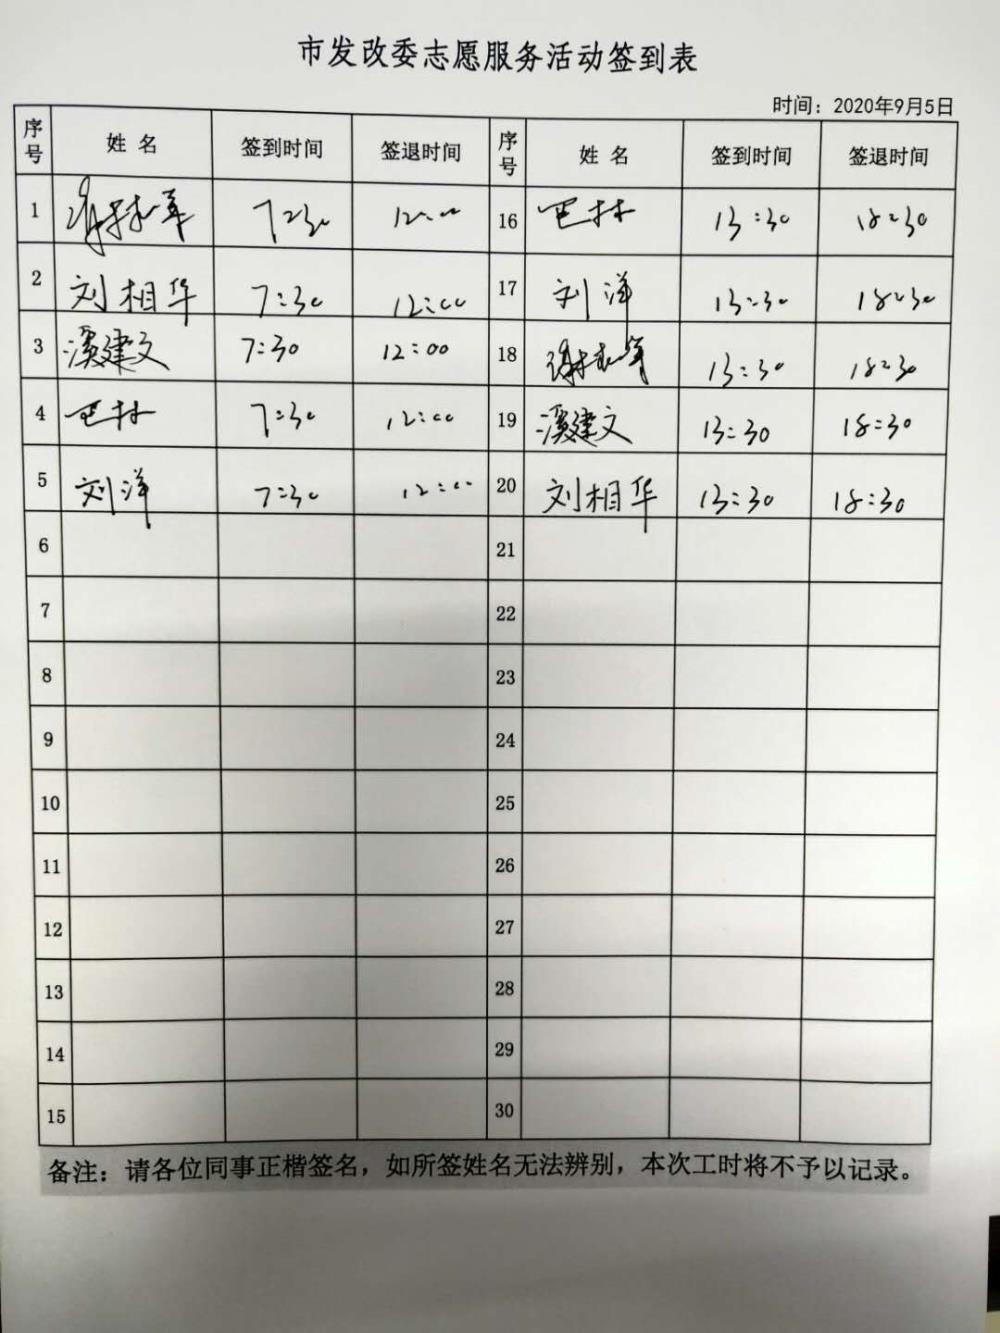 市发改委志愿服务活动签到表
时间：2020年9月5日
序号 姓名 签到时间 签退时间 序号 姓名 签到时间 签退时间
1 7:30 12:00 16 巴林 13:30 18:30
2 刘相华 7:30 12:00 17 刘洋 13:30 18:30
3 溪建文 7:30 12:00 18 13:30 18:30
4 巴林 7:30 12:00 19 溪建文 13:30 18:30
5 刘洋 7:30 12:00 20 刘相华 13:30 18:30
6 21
7 22
8 23
9 24
10 25
11 26
12 27
13 28
14 29
15 30
备注：请各位同事正楷签名，如所签姓名无法辨别，本次工时将不予以记录。